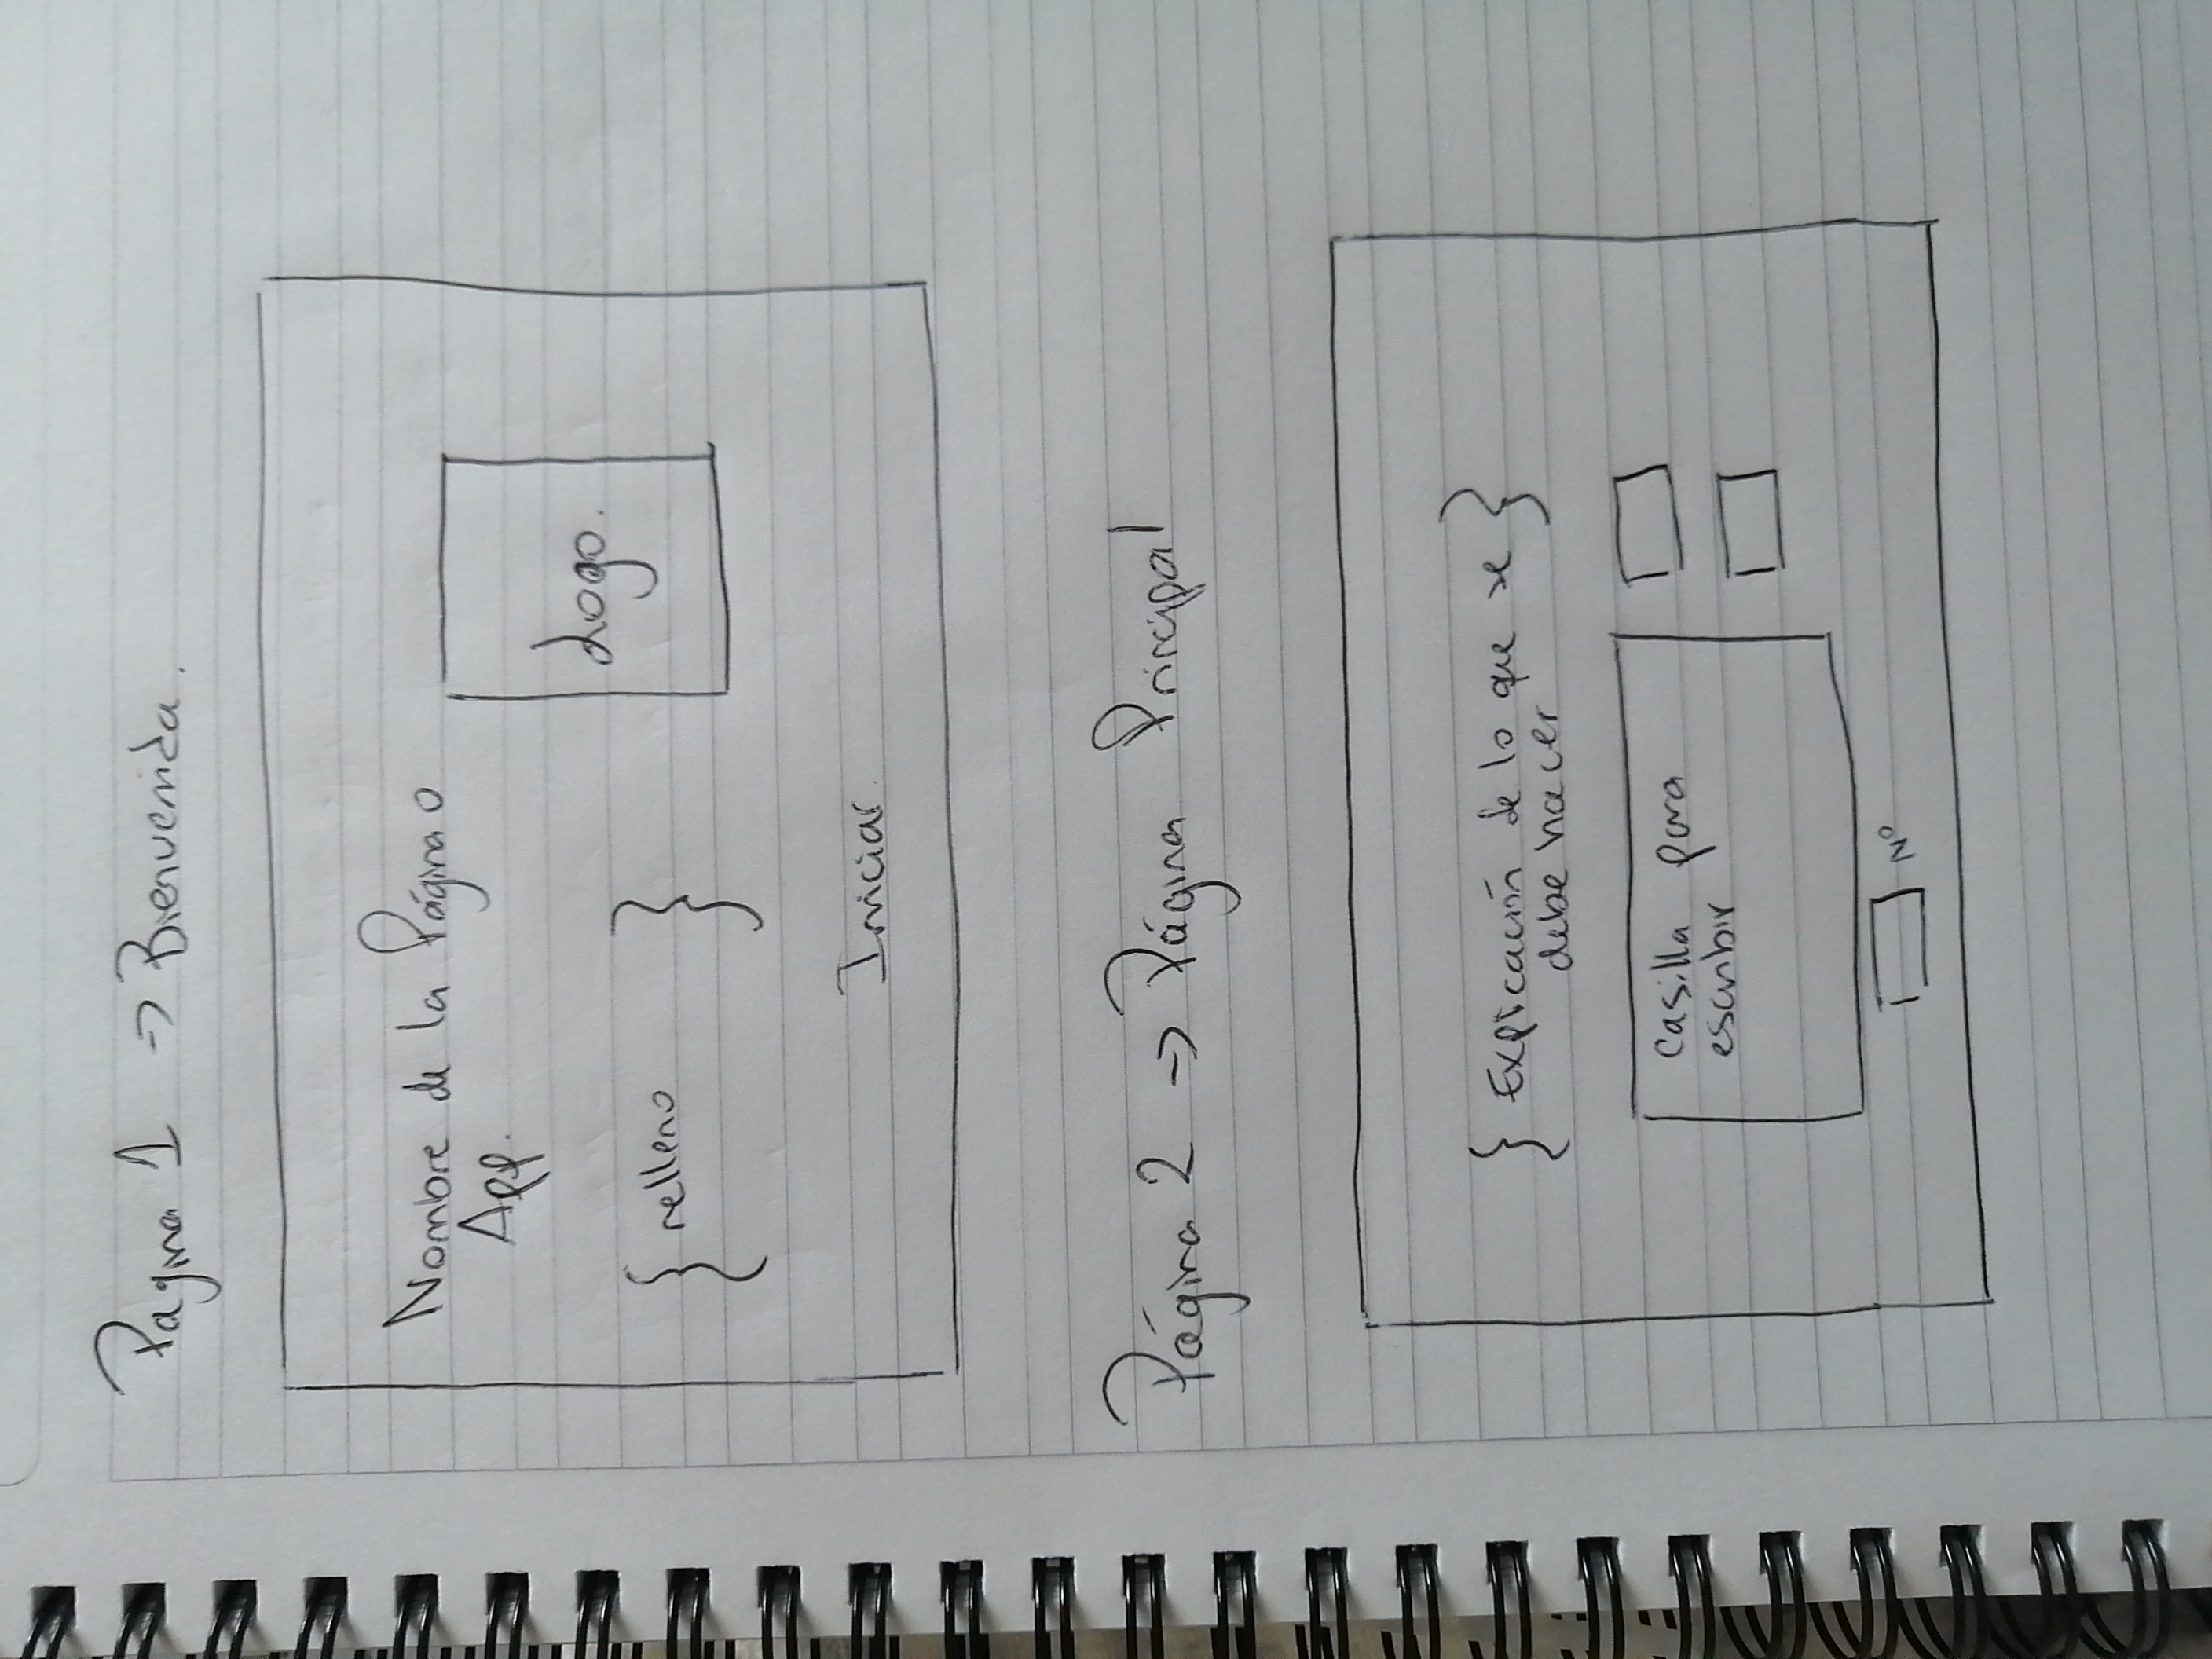 Pagina 1 -> Bienvenida.
Nombre de la Página o
App.
Logo.
{ relleno }
Iniciar.
Página 2 -> Página Principal
{ Explicación de lo que se }
debe hacer
casilla para
escribir
Nº